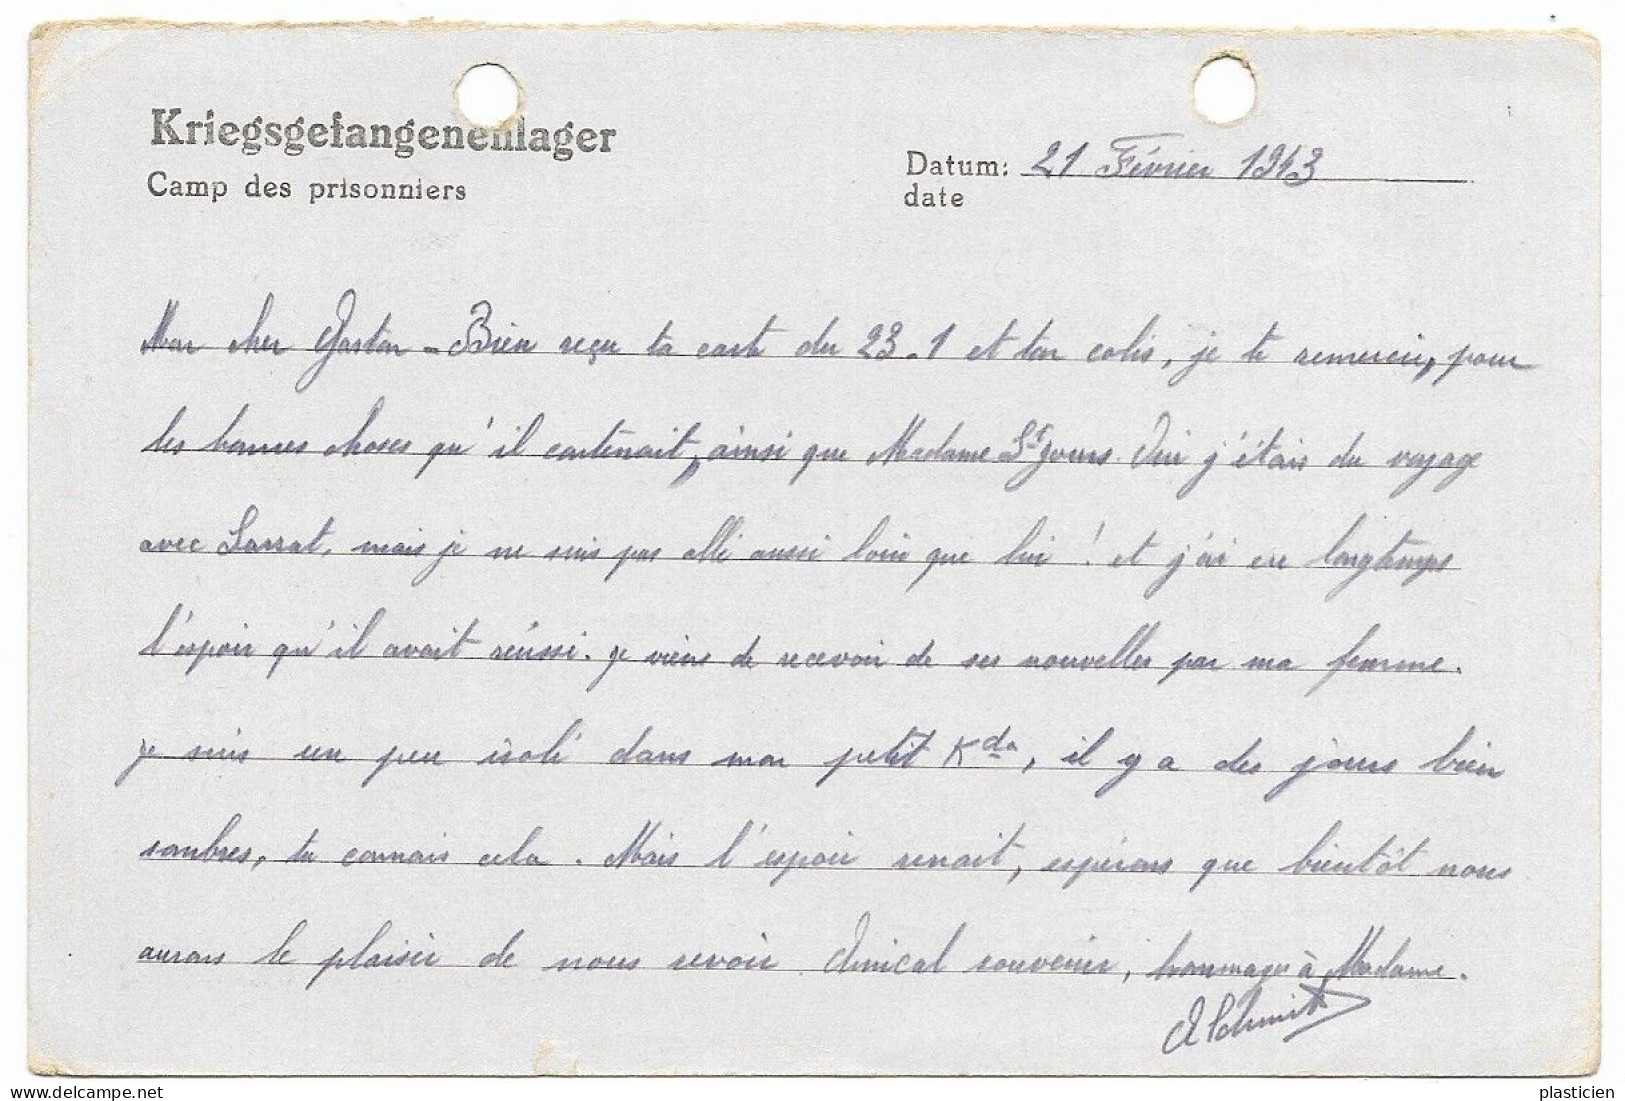 Kriegsgefangenenlager
Camp des prisonniers
Datum: 21 Février 1943
date
Mon cher Gaston - Bien reçu ta carte du 23-1 et ton colis, je te remercie, pour
les bonnes choses qu'il contenait, ainsi que Madame St Jours. Oui j'étais du voyage
avec Sarrat, mais je ne suis pas allé aussi loin que lui ! et j'ai eu longtemps
l'espoir qu'il avait réussi. je viens de recevoir de ses nouvelles par ma femme.
je suis un peu isolé dans mon petit Kdo, il y a des jours bien
sombres, tu connais cela. Mais l'espoir renait, espérons que bientôt nous
aurons le plaisir de nous revoir. Amical souvenir, hommages à Madame.
A Schmitt
delcampe.net
plasticien